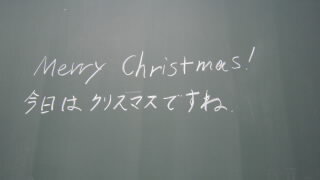 Merry Christmas!
今日はクリスマスですね.